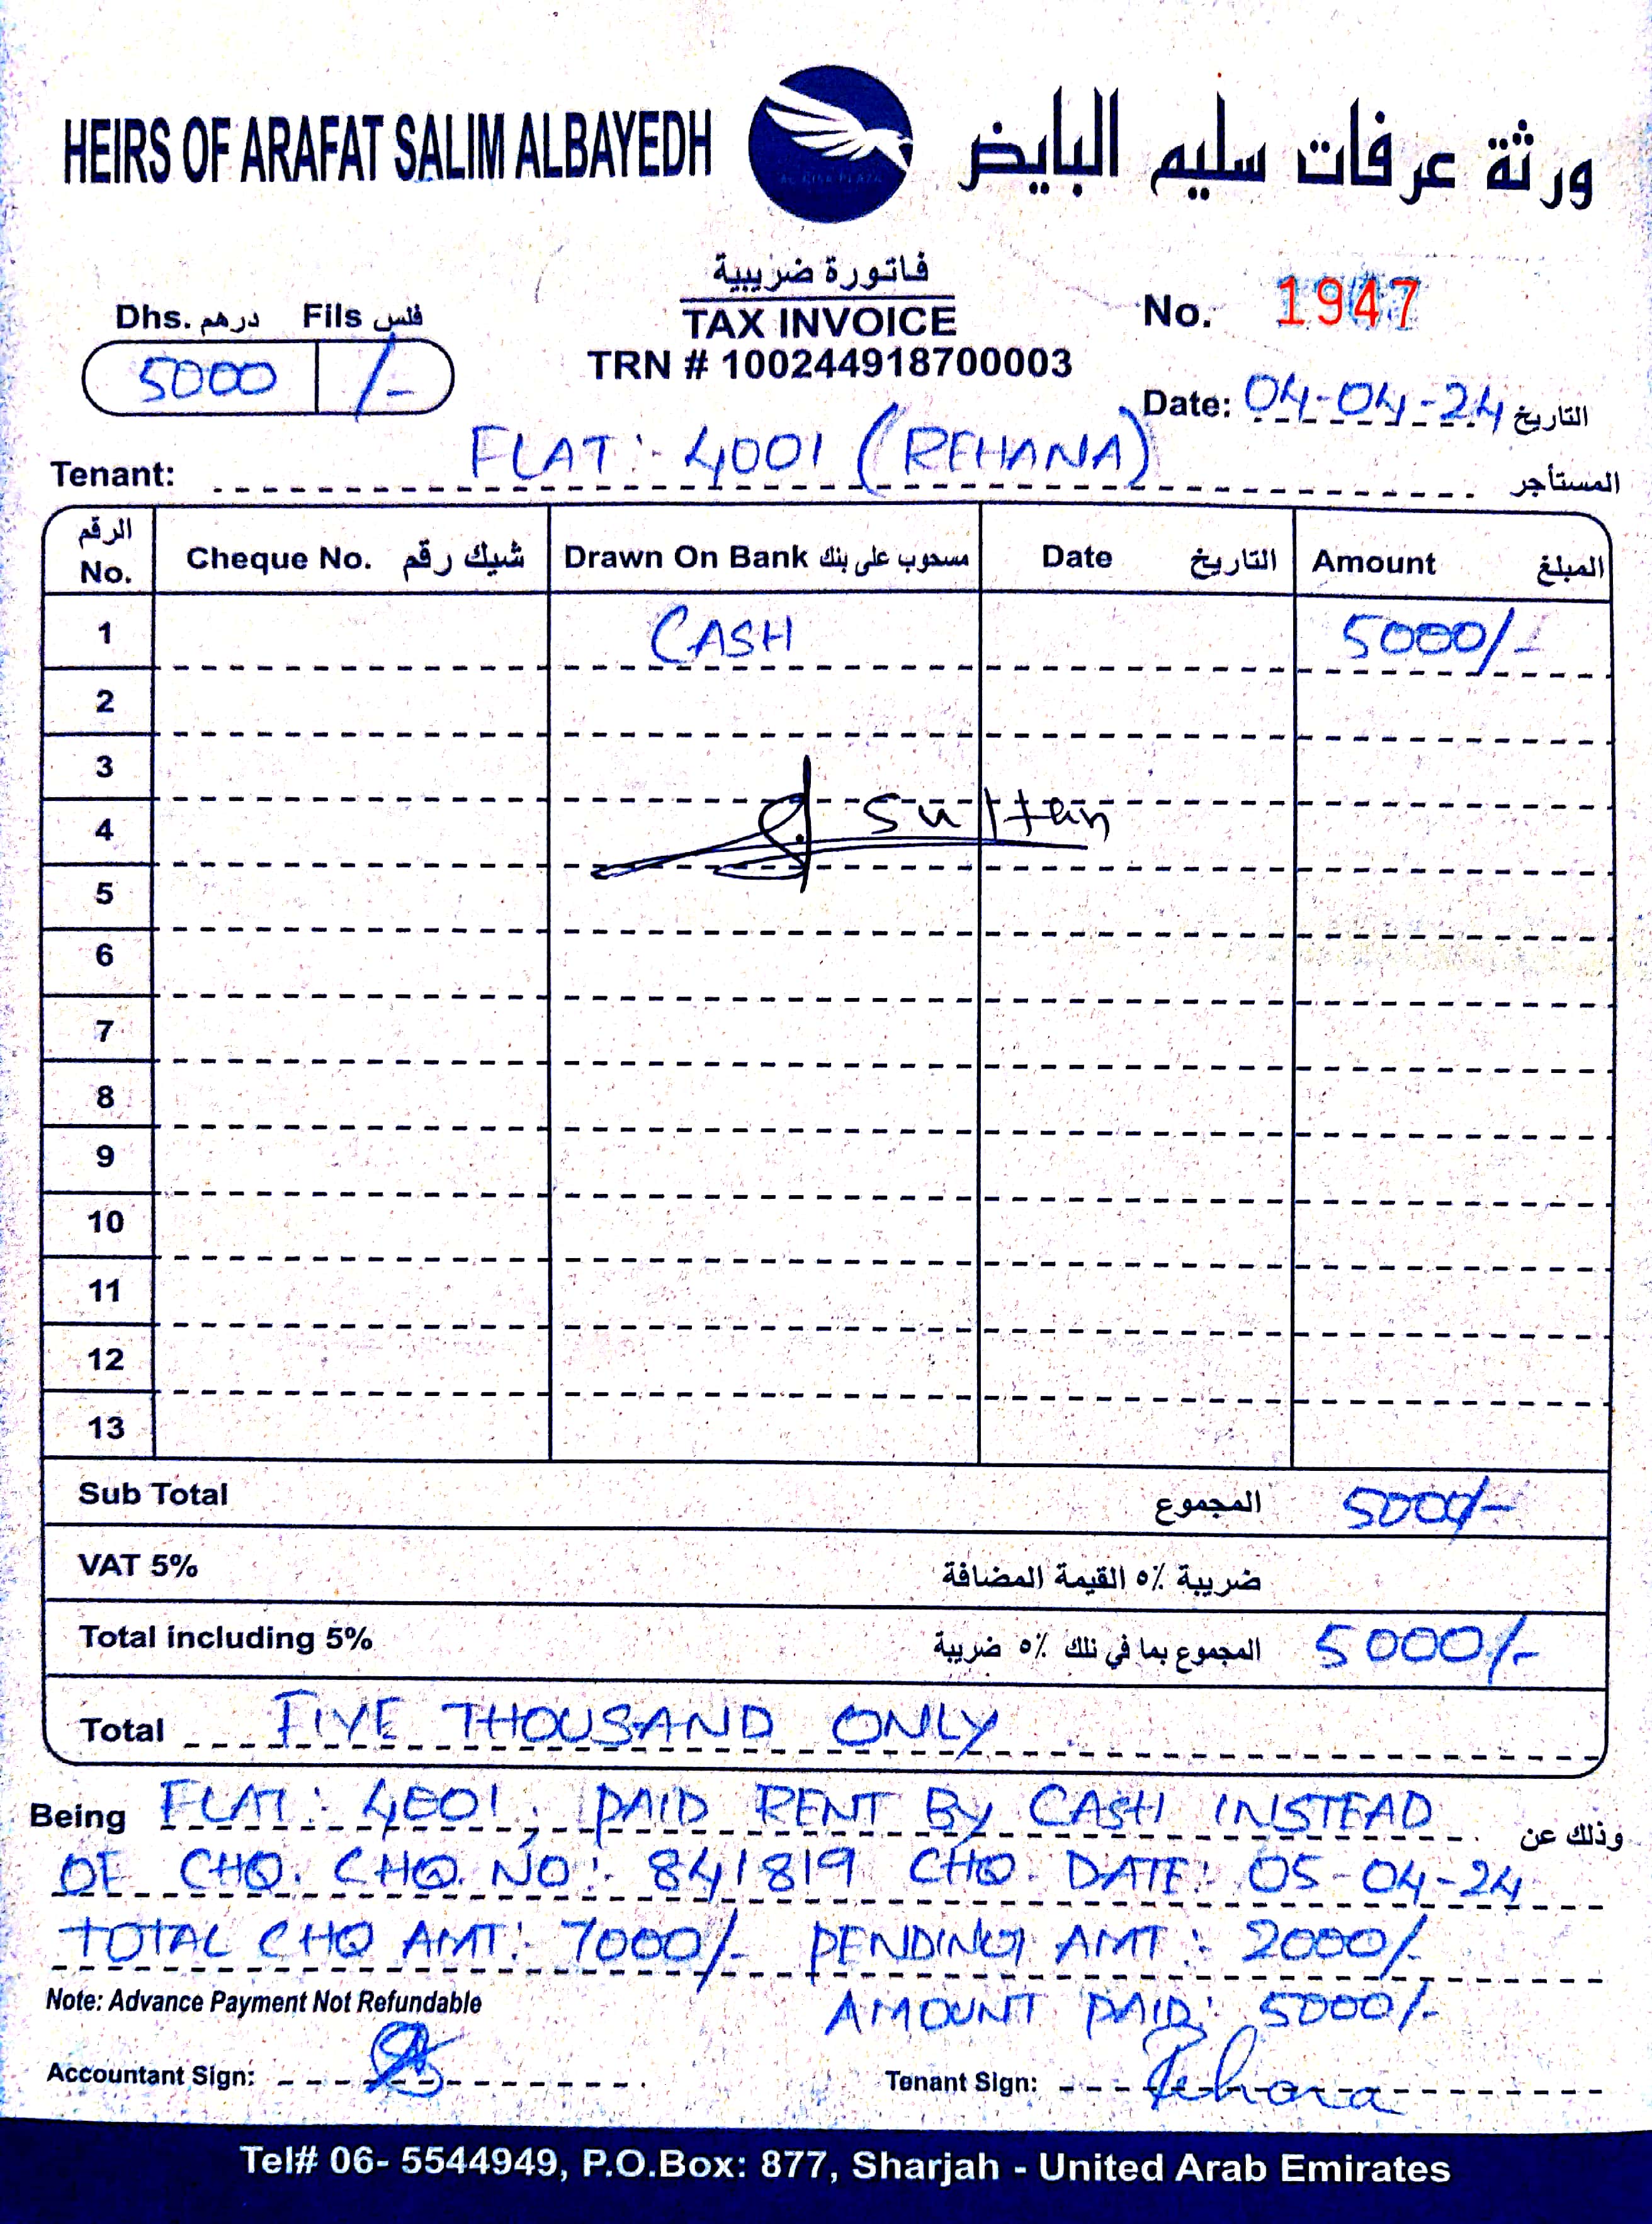 HEIRS OF ARAFAT SALIM ALBAYEDH
ورثة عرفات سليم البايض
فاتورة ضريبية
TAX INVOICE
TRN # 100244918700003
Dhs. درهم Fils فلس
5000 /-
No. 1947
Date: 04-04-24 التاريخ
Tenant: FLAT:- 4001 (REHANA) المستأجر
الرقم No. Cheque No. شيك رقم Drawn On Bank مسحوب على بنك Date التاريخ Amount المبلغ
1 CASH 5000/-
2
3
4 Sultan
5
6
7
8
9
10
11
12
13
Sub Total المجموع 5000/-
VAT 5% ضريبة ٥٪ القيمة المضافة
Total including 5% المجموع بما في ذلك ٥٪ ضريبة 5000/-
Total FIVE THOUSAND ONLY
Being FLAT: 4001, PAID RENT BY CASH INSTEAD وذلك عن
OF CHQ. CHQ. NO:- 841819 CHQ. DATE: 05-04-24
TOTAL CHQ AMT:- 7000/- PENDING AMT:- 2000/-
Note: Advance Payment Not Refundable
AMOUNT PAID: 5000/-
Accountant Sign:
Tenant Sign: Rehana
Tel# 06- 5544949, P.O.Box: 877, Sharjah - United Arab Emirates